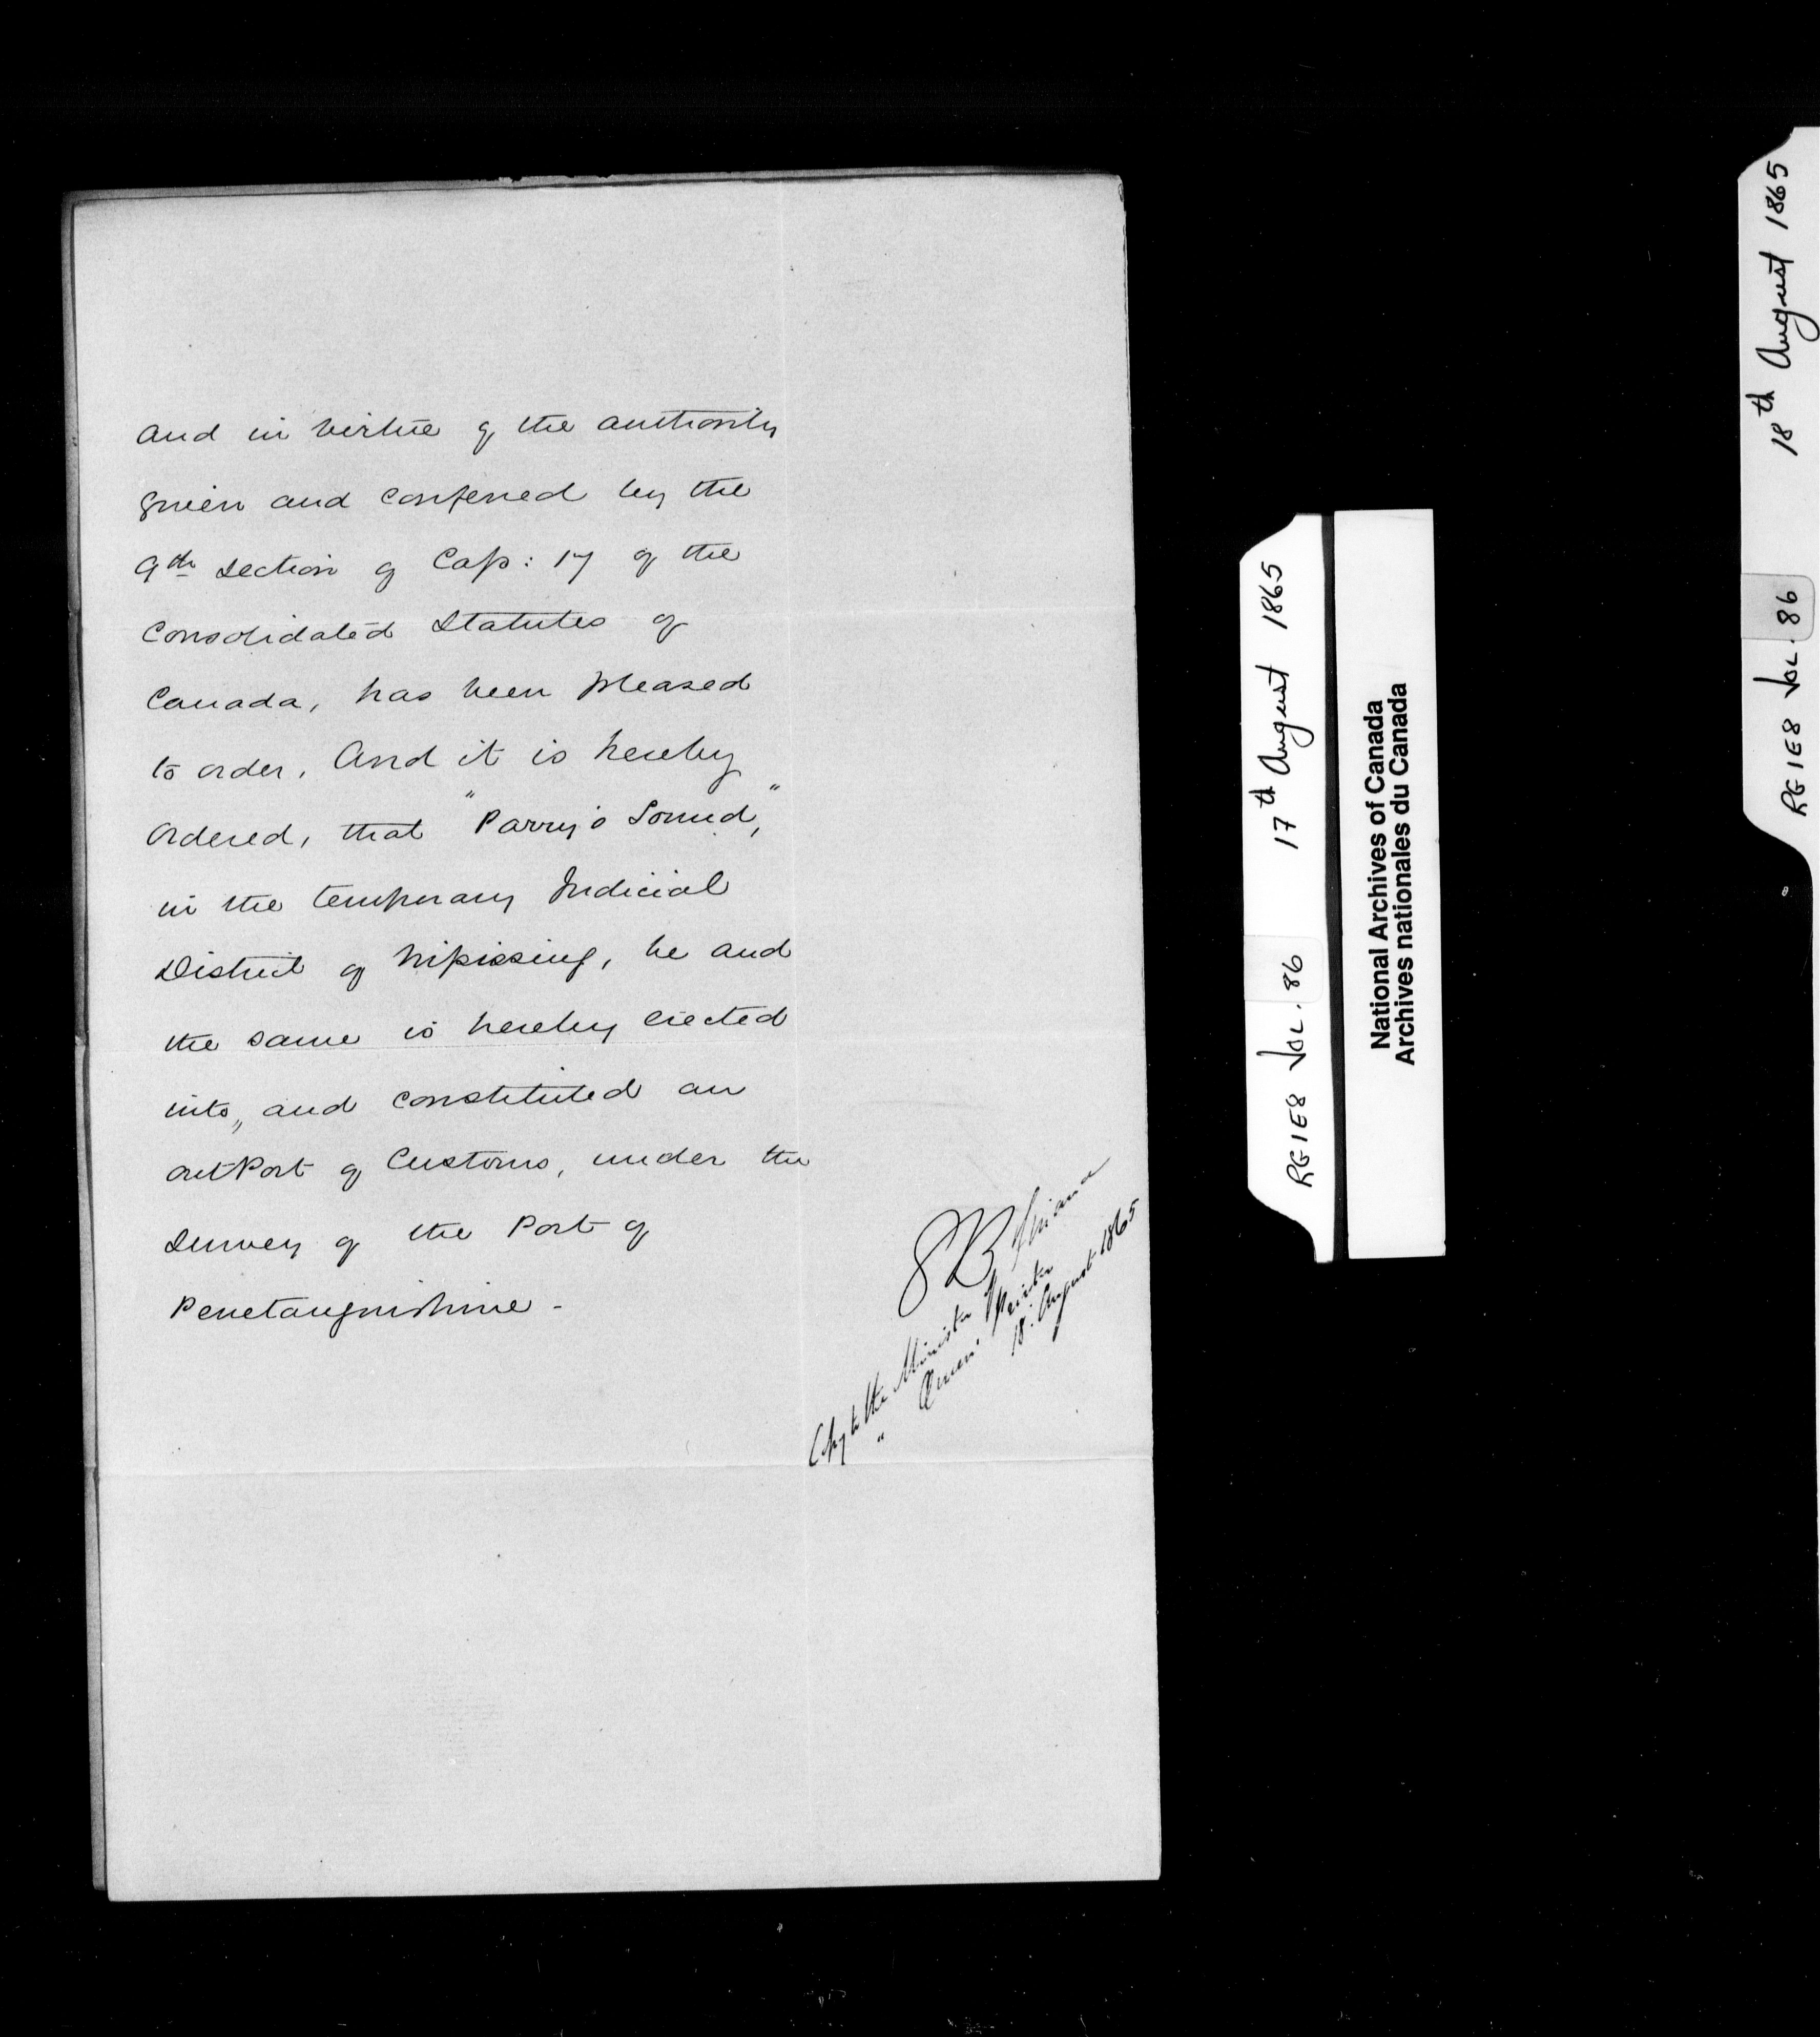 and in virtue of the authority
given and conferred by the
9th Section of Cap: 17 of the
Consolidated Statutes of
Canada, has been pleased
to order, And it is hereby
Ordered, that "Parry's Sound,"
in the temporary Judicial
District of Nipissing, be and
the same is hereby erected
into, and constituted an
outPort of Customs, under the
Survey of the Port of
Penetanguishine -
Copy to the Minister Finance
" Queen's Printer
18. August 1865
17th August 1865
RG1E8 VOL. 86
National Archives of Canada
Archives nationales du Canada
18th August 1865
RG1E8 VOL. 86